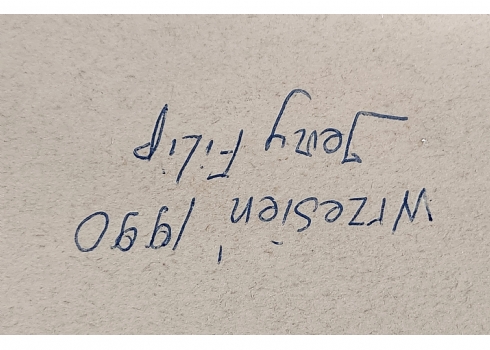 Wrzesień 1990
Jerzy Filip